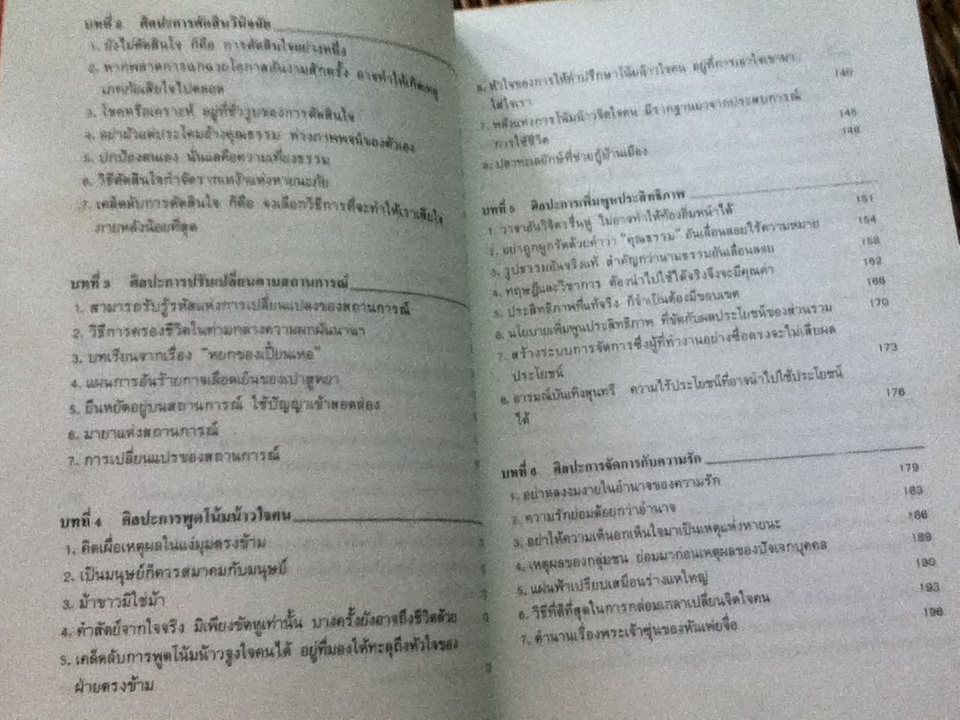 บทที่ 2 ศิลปะการตัดสินวินิจฉัย
1. ยังไม่ตัดสินใจ ก็คือ การตัดสินใจอย่างหนึ่ง
2. หากพลาดการฉกฉวยโอกาสอันงามสักครั้ง อาจทำให้เกิดเหตุ
เภทภัยเสียใจไปตลอด
3. โชคหรือเคราะห์ อยู่ที่ชั่ววูบของการตัดสินใจ
4. อย่ามัวแต่ประโคมอ้างคุณธรรม ห่วงภาพพจน์ของตัวเอง
5. ปกป้องตนเอง นั่นแลคือความเที่ยงธรรม
6. วิธีตัดสินใจกำจัดรากเหง้าแห่งหายนะภัย
7. เคล็ดลับการตัดสินใจ ก็คือ จงเลือกวิธีการที่จะทำให้เราเสียใจ
ภายหลังน้อยที่สุด
บทที่ 3 ศิลปะการปรับเปลี่ยนตามสถานการณ์
1. สามารถรับรู้รหัสแห่งการเปลี่ยนแปลงของสถานการณ์
2. วิธีการครองชีวิตในท่ามกลางความผกผันนานา
3. บทเรียนจากเรื่อง "หยกของเปี้ยนเหอ"
4. แผนการอันร้ายกาจเลือดเย็นของเปาสูหยา
5. ยืนหยัดอยู่บนสถานการณ์ ใช้ปัญญาเข้าสอดส่อง
6. มายาแห่งสถานการณ์
7. การเปลี่ยนแปรของสถานการณ์
บทที่ 4 ศิลปะการพูดโน้มน้าวใจคน
1. คิดเผื่อเหตุผลในแง่มุมตรงข้าม
2. เป็นมนุษย์ก็ควรสมาคมกับมนุษย์
3. ม้าขาวมิใช่ม้า
4. คำสัตย์จากใจจริง มิเพียงขัดหูเท่านั้น บางครั้งยังอาจถึงชีวิตด้วย
5. เคล็ดลับการพูดโน้มน้าวจูงใจคนได้ อยู่ที่มองให้ทะลุถึงหัวใจของ
ฝ่ายตรงข้าม
6. หัวใจของการให้คำปรึกษาโน้มน้าวใจคน อยู่ที่การเอาใจเขามา
ใส่ใจเรา 140
7. พลังแห่งการโน้มน้าวจิตใจคน มีรากฐานมาจากประสบการณ์
การใช้ชีวิต 145
8. ปลาทะเลยักษ์ที่ช่วยกู้บ้านเมือง 148
บทที่ 5 ศิลปะการเพิ่มพูนประสิทธิภาพ 151
1. วาจาอันวิจิตรรื่นหู ไม่อาจทำให้ท้องอิ่มหนำได้ 154
2. อย่าถูกผูกรัดด้วยคำว่า "คุณธรรม" อันเลื่อนลอยไร้ความหมาย 158
3. รูปธรรมอันจริงแท้ สำคัญกว่านามธรรมอันเลื่อนลอย 162
4. ทฤษฎีและวิชาการ ต้องนำไปใช้ได้จริงจึงจะมีคุณค่า 166
5. ประสิทธิภาพที่แท้จริง ก็จำเป็นต้องมีขอบเขต
6. นโยบายเพิ่มพูนประสิทธิภาพ ที่ขัดกับผลประโยชน์ของส่วนรวม 170
7. สร้างระบบการจัดการซึ่งผู้ที่ทำงานอย่างซื่อตรงจะไม่เสียผล
ประโยชน์ 173
8. อารมณ์บันเทิงสุนทรี ความไร้ประโยชน์ที่อาจนำไปใช้ประโยชน์
ได้ 176
บทที่ 6 ศิลปะการจัดการกับความรัก
1. อย่าหลงงมงายในอำนาจของความรัก 179
2. ความรักย่อมด้อยกว่าอำนาจ 183
3. อย่าให้ความเห็นอกเห็นใจมาเป็นเหตุแห่งหายนะ 186
4. เหตุผลของกลุ่มชน ย่อมมาก่อนเหตุผลของปัจเจกบุคคล 189
5. แผ่นฟ้าเปรียบเสมือนร่างแหใหญ่ 190
6. วิธีที่ดีที่สุดในการกล่อมเกลาเปลี่ยนจิตใจคน 193
7. ตำนานเรื่องพระเจ้าซุ่นของหันเฟยจื่อ 196